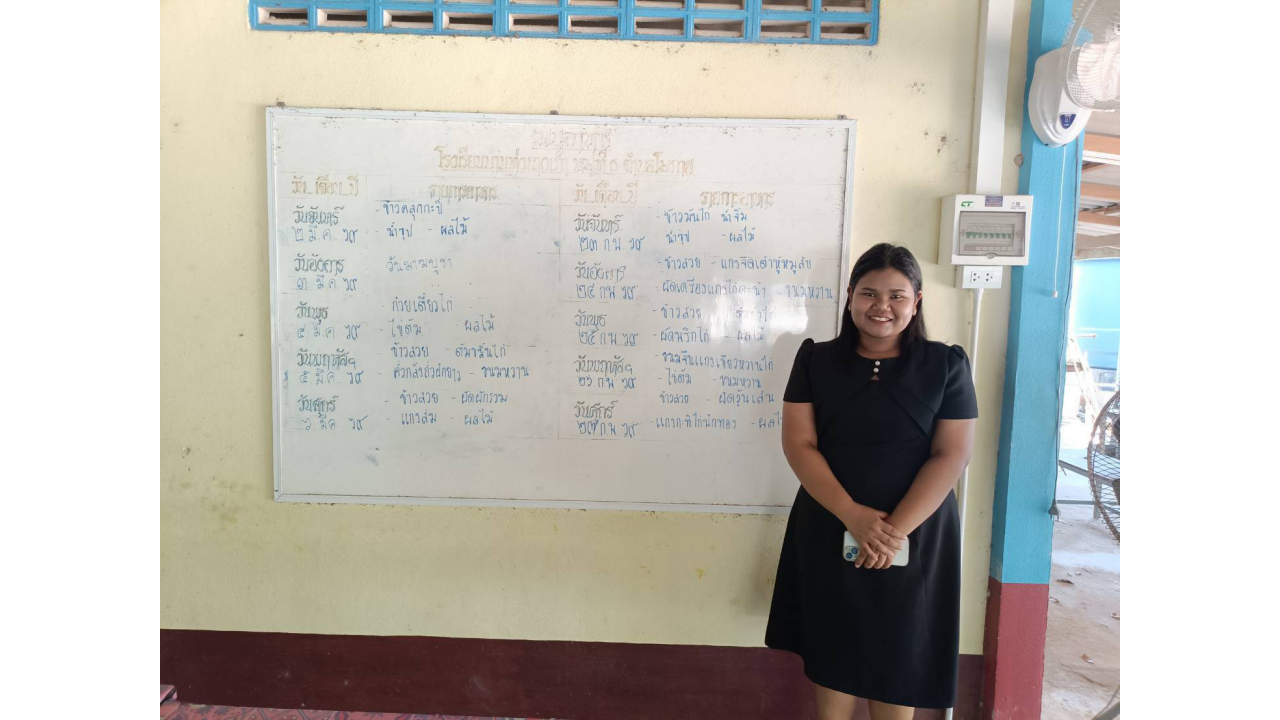 เมนูอาหาร
โรงเรียน
วัน_เดือน_ปี รายการอาหาร
วันจันทร์ - ข้าวคลุกกะปิ
๒ มี.ค. ๖๙ - น้ำซุป - ผลไม้
วันอังคาร วันมาฆบูชา
๓ มี.ค. ๖๙
วันพุธ ก๋วยเตี๋ยวไก่
๔ มี.ค. ๖๙ - ไข่ต้ม - ผลไม้
วันพฤหัสฯ ข้าวสวย - ต้มขมิ้นไก่
๕ มี.ค. ๖๙ - คั่วกลิ้งถั่วฝักยาว - ขนมหวาน
วันศุกร์ - ข้าวสวย - ผัดผักรวม
๖ มี.ค. ๖๙ แกงส้ม - ผลไม้
วัน_เดือน_ปี รายการอาหาร
วันจันทร์ - ข้าวมันไก่ น้ำจิ้ม
๒๓ ก.พ. ๖๙ น้ำซุป - ผลไม้
วันอังคาร - ข้าวสวย - แกงจืดเต้าหู้หมูสับ
๒๔ ก.พ. ๖๙ - ผัดเครื่องแกงไก่คะน้า - ขนมหวาน
วันพุธ - ข้าวสวย
๒๕ ก.พ. ๖๙ - ผัดพริกไก่ - ผลไม้
วันพฤหัสฯ - ขนมจีนแกงเขียวหวานไก่
๒๖ ก.พ. ๖๙ - ไข่ต้ม - ขนมหวาน
วันศุกร์ ข้าวสวย - ผัดวุ้นเส้น
๒๗ ก.พ. ๖๙ - แกงกะทิไก่ฟักทอง
CT